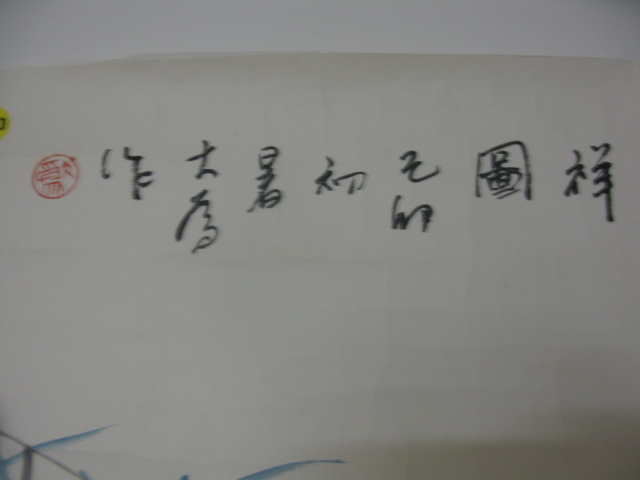 祥
圖
己卯
初
暑
大為
作